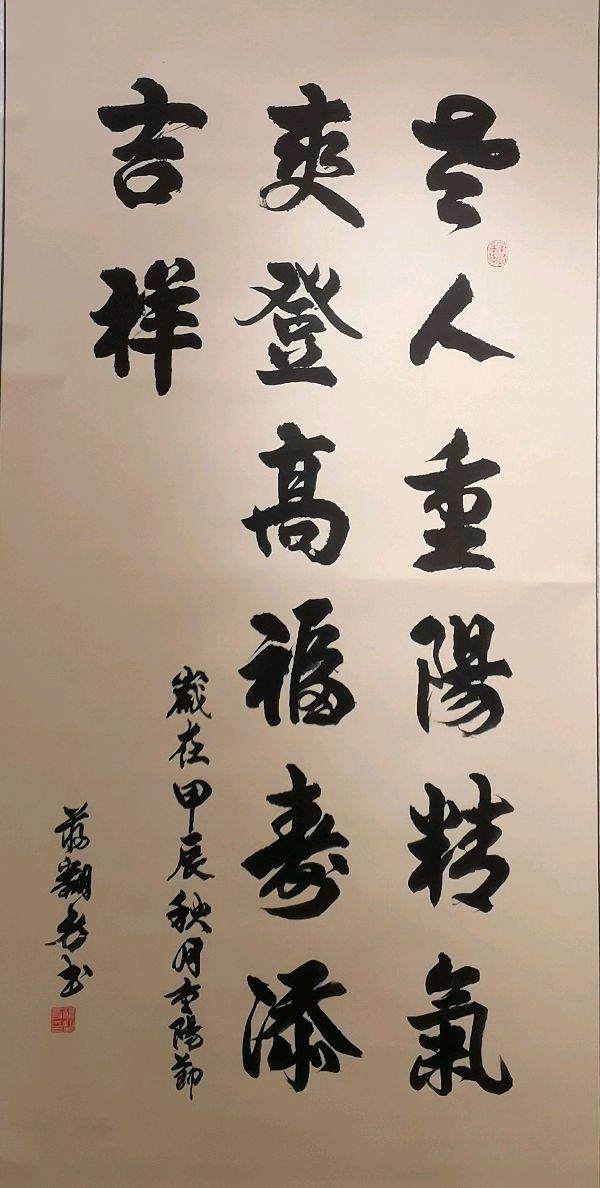 老人重陽精氣
爽登高福寿添
吉祥
歲在甲辰秋月重陽節
書